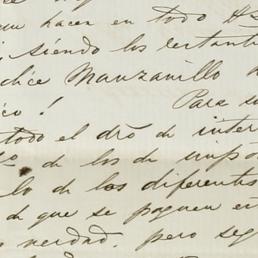 hacen en todo
siendo los restante
dice Manzanillo
ico!
Para su
todo el dro de inter
o de los de impo
lo de los diferentes
de que se paguen en
verdad, pero seg